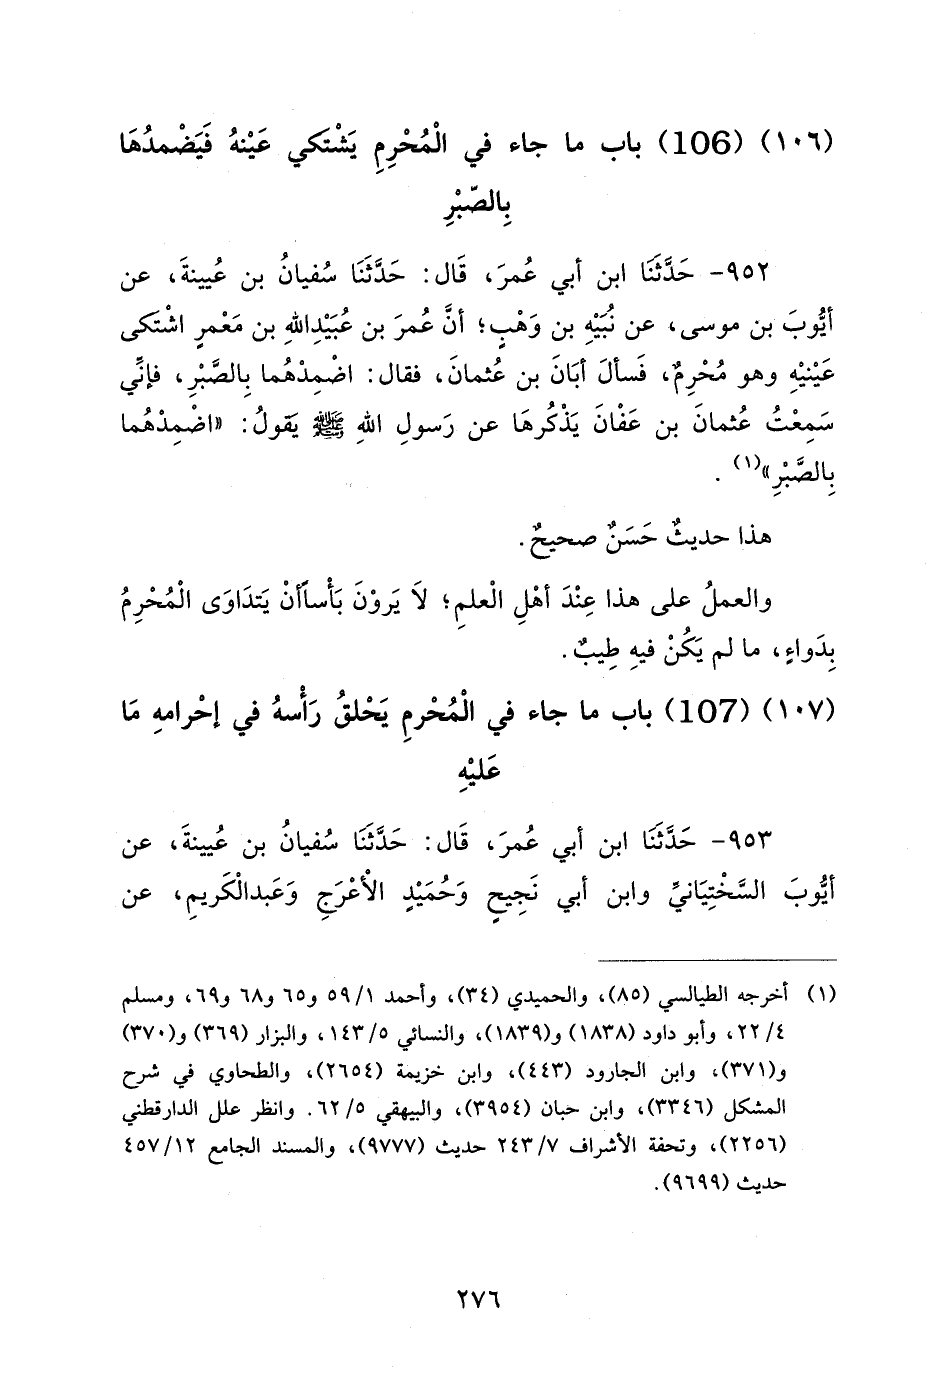 (١٠٦) (106) باب ما جاء في الْمُحْرِمِ يَشْتكي عَيْنهُ فَيَضْمدُهَا
بِالصّبْرِ
٩٥٢- حَدَّثَنَا ابن أبي عُمرَ، قَال: حَدَّثَنَا سُفيانُ بن عُيينةَ، عن
أيُّوبَ بن موسى، عن نُبَيْهِ بن وَهْبٍ؛ أنَّ عُمرَ بن عُبَيْدِاللهِ بن مَعْمرٍ اشْتكى
عَيْنيْهِ وهو مُحْرِمٌ، فَسألَ أبَانَ بن عُثمانَ، فقال: اضْمِدْهُما بِالصَّبْرِ، فإنِّي
سَمِعْتُ عُثمانَ بن عَفْانَ يَذْكُرهَا عن رَسولِ اللهِ ﷺ يَقولُ: «اضْمِدْهُما
بِالصَّبْرِ»(١) .
هذا حديثٌ حَسَنٌ صحيحٌ.
والعملُ على هذا عِنْدَ أهْلِ الْعلمِ؛ لاَ يَروْنَ بَأْساًأنْ يَتدَاوَى الْمُحْرِمُ
بِدَواءٍ، ما لم يَكُنْ فيهِ طِيبٌ.
(١٠٧) (107) باب ما جاء في الْمُحْرمِ يَحْلقُ رَأْسهُ في إحْرامهِ مَا
عَليْهِ
٩٥٣- حَدَّثَنَا ابن أبي عُمرَ، قَال: حَدَّثَنَا سُفيانُ بن عُيينةَ، عن
أيُّوبَ السَّخْتِيَانيِّ وابن أبي نَجِيحٍ وَحُمَيْدٍ الأعْرَجِ وَعَبدالْكَريمِ، عن
(١) أخرجه الطيالسي (٨٥)، والحميدي (٣٤)، وأحمد ٥٩/١ و٦٥ و٦٨ و٦٩، ومسلم
٢٢/٤، وأبو داود (١٨٣٨) و(١٨٣٩)، والنسائي ١٤٣/٥، والبزار (٣٦٩) و(٣٧٠)
و(٣٧١)، وابن الجارود (٤٤٣)، وابن خزيمة (٢٦٥٤)، والطحاوي في شرح
المشكل (٣٣٤٦)، وابن حبان (٣٩٥٤)، والبيهقي ٦٢/٥. وانظر علل الدارقطني
(٢٢٥٦)، وتحفة الأشراف ٢٤٣/٧ حديث (٩٧٧٧)، والمسند الجامع ٤٥٧/١٢
حديث (٩٦٩٩).
٢٧٦